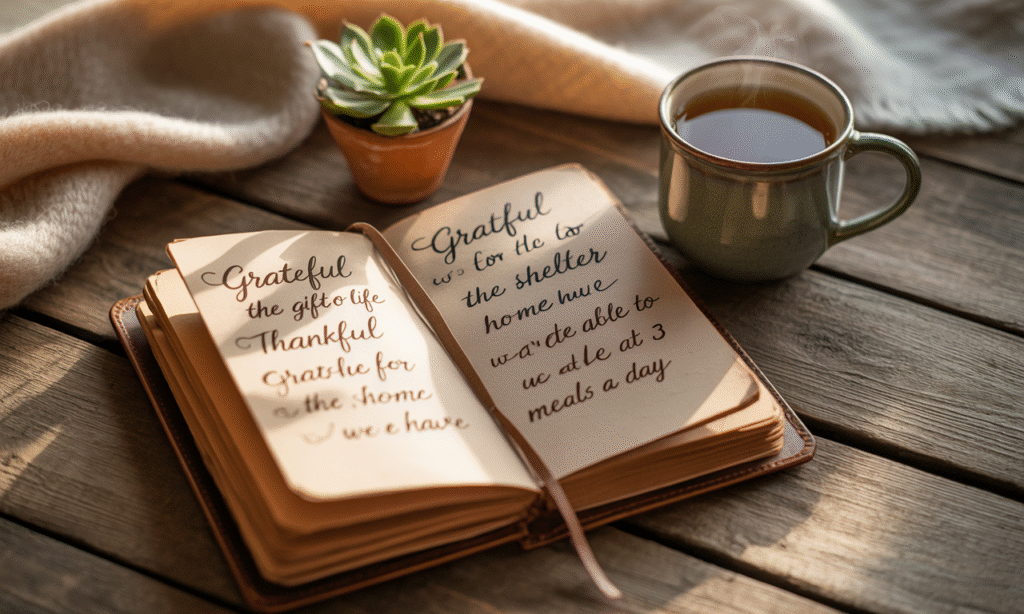 Grateful
the gift o life
Thankful
for
the home
we e have
Gratful
for the to
the shelter
home
able to
at 3
meals a day